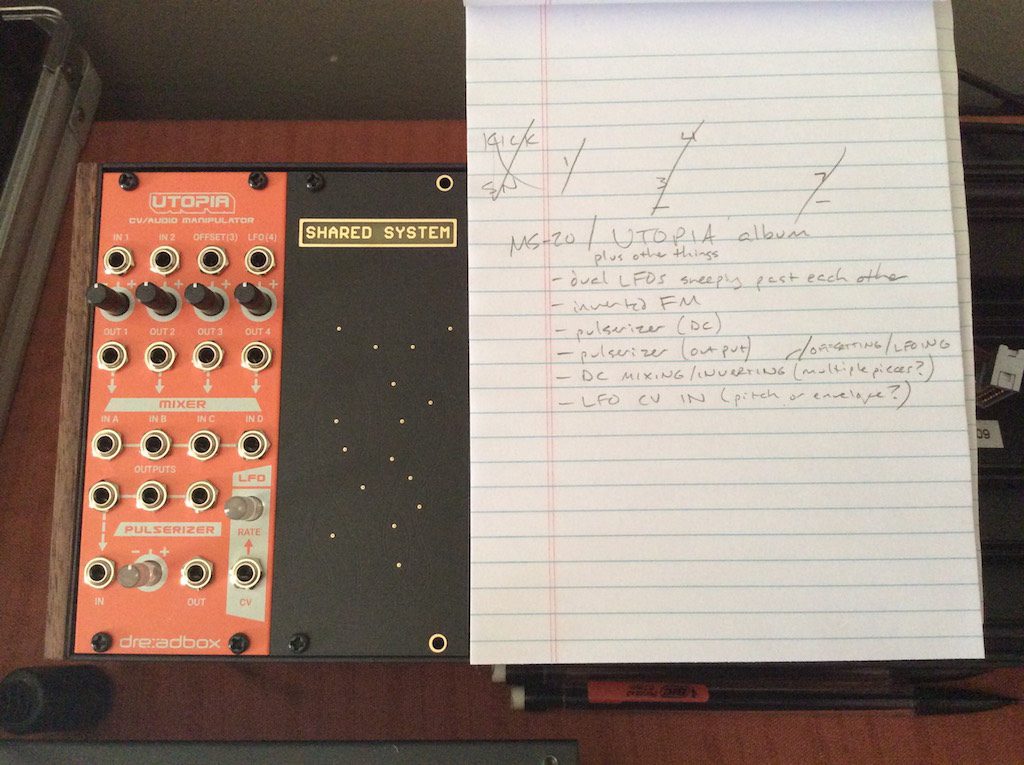 UTOPIA
CV/AUDIO MANIPULATOR
IN 1 IN 2 OFFSET(3) LFO(4)
+ + + +
OUT 1 OUT 2 OUT 3 OUT 4
MIXER
IN A IN B IN C IN D
OUTPUTS
LFO
PULSERIZER
RATE
- +
IN OUT CV
dre:adbox
SHARED SYSTEM
KICK
SN
1/
3 4
7
MS-20 / UTOPIA album
plus other things
- dual LFOs sweeping past each other
- inverted FM
- pulserizer (DC)
- pulserizer (output)
/OFFSETTING/LFOING
- DC MIXING/INVERTING (multiple pieces?)
- LFO CV IN (pitch or envelope?)
09